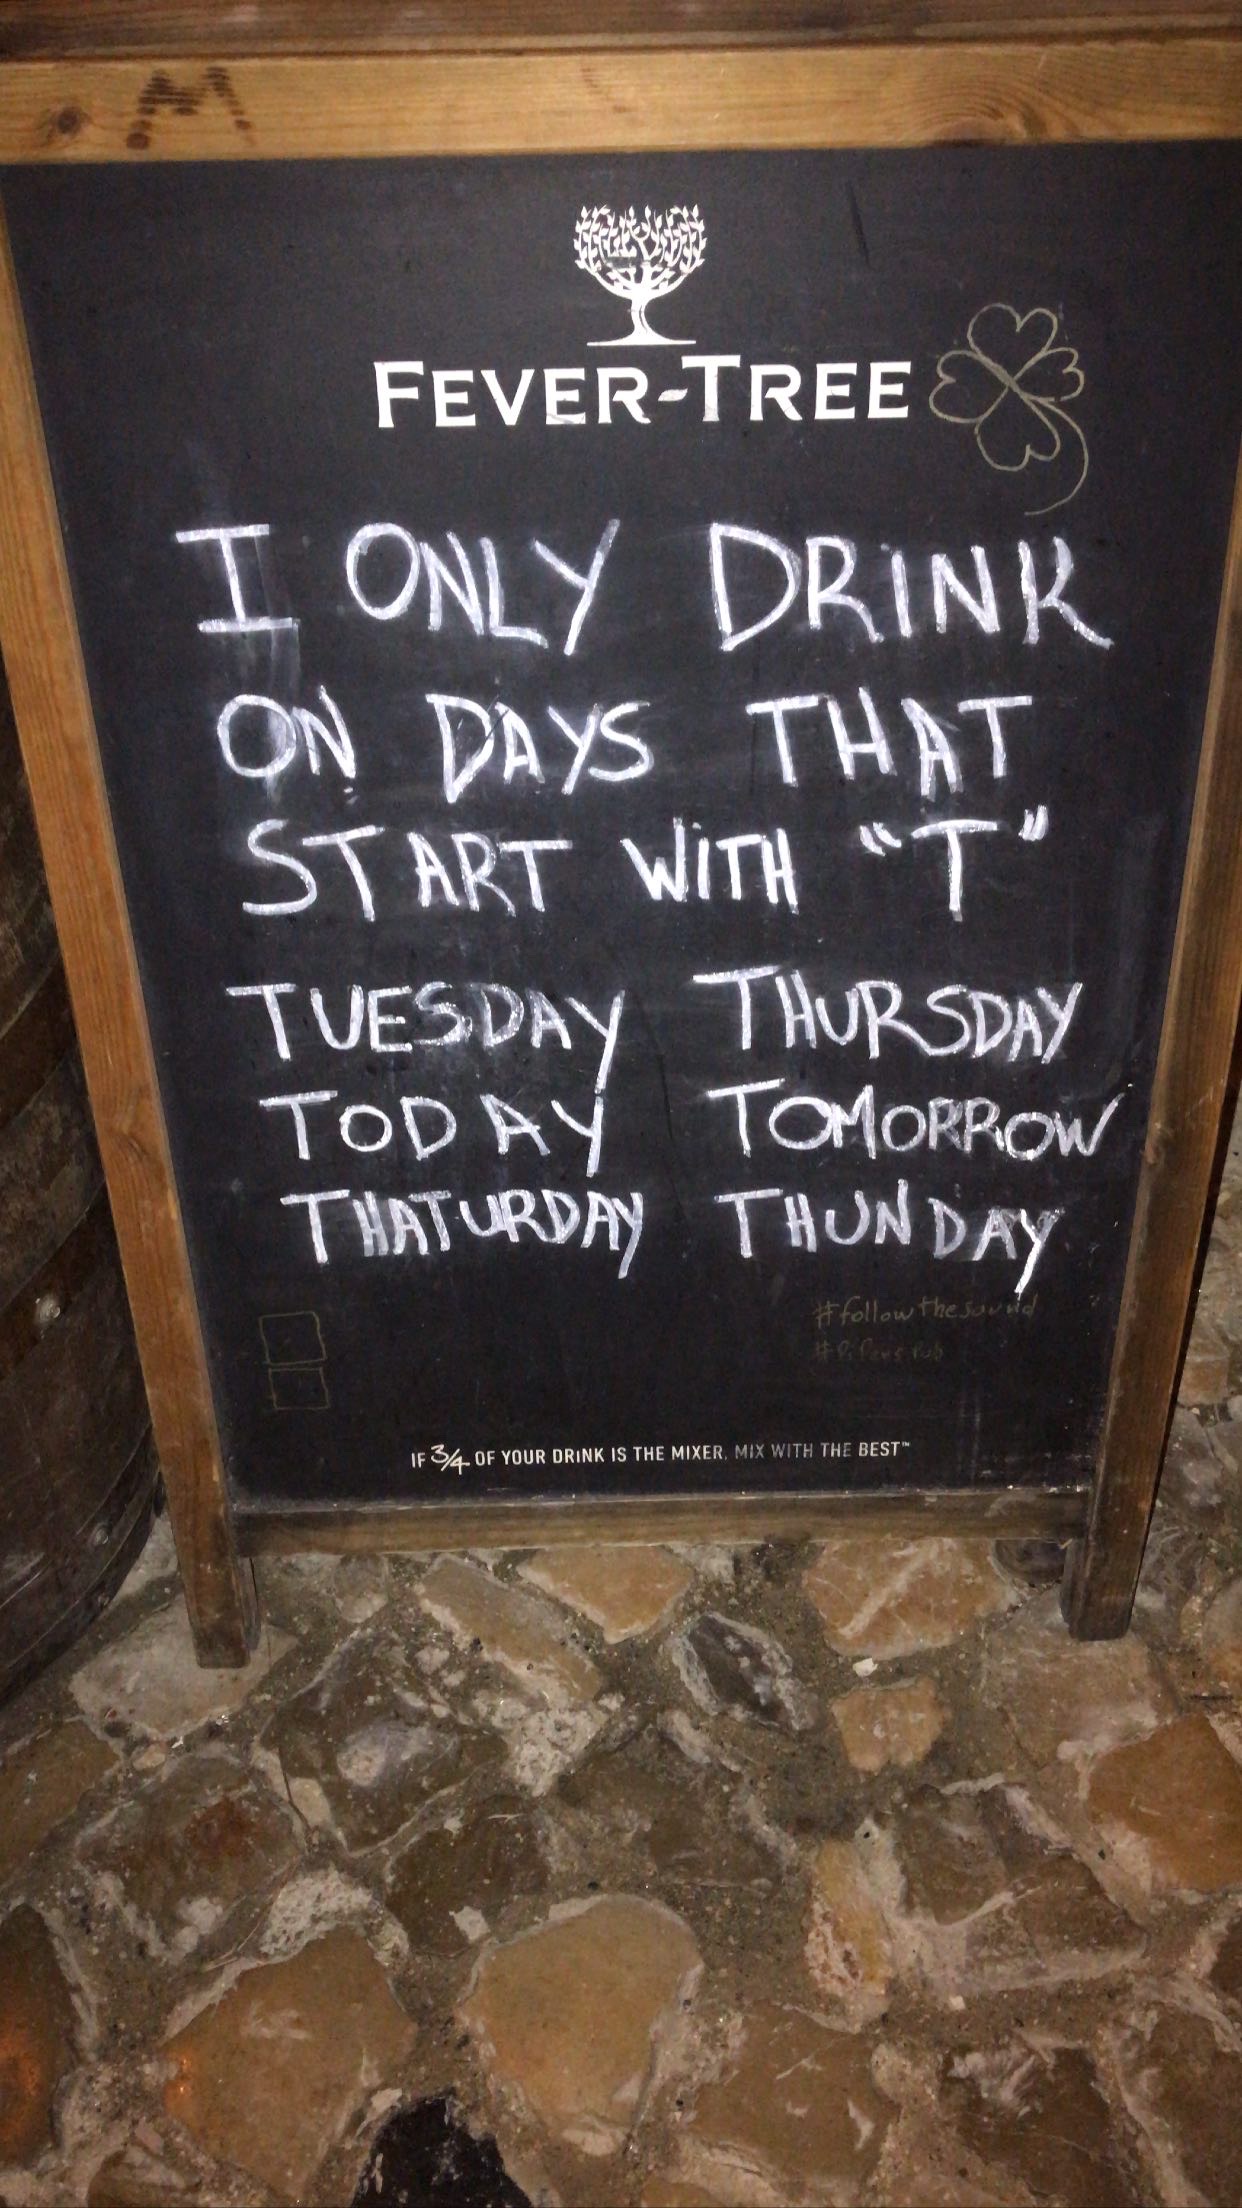 M
FEVER-TREE
I ONLY DRINK
ON DAYS THAT
START WITH "T"
TUESDAY THURSDAY
TODAY TOMORROW
THATURDAY THUNDAY
#followthesound
IF 3/4 OF YOUR DRINK IS THE MIXER, MIX WITH THE BEST™